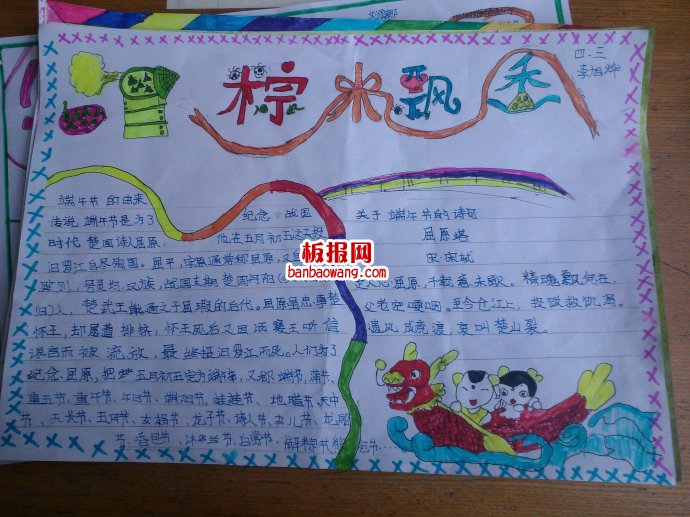 柠米飘香
四.三
李旭烨
端午节的由来
传说端午节是为了
纪念战国
时代楚国诗人屈原.
他在五月初五这天投
汨罗江自尽殉国。屈平,字原通常称屈原,又
归)人,楚武王熊通之子屈瑕的后代。屈原虽忠事楚
怀王,却屡遭排挤,怀王死后又因顷襄王听信
谗言而被流放,最终投汨罗江而死。人们为了
纪念屈原,把
五月初五定为端午节,又称端节,蒲节、
重五节、重午节、
娃娃节、地腊节、天中
节,天长节、五月节、女娲节、龙子节、诗人节、女儿节、
节、
沐兰节、
解粽节
关于端午节的诗句
屈原塔
宋·宋轼
人
屈原,千载意未歇。精魂飘何在,
父老空哽咽。至今仓江上,投饭救饥渴。
遗风成竞渡,哀叫楚山裂。
板报网
banbaowang.com